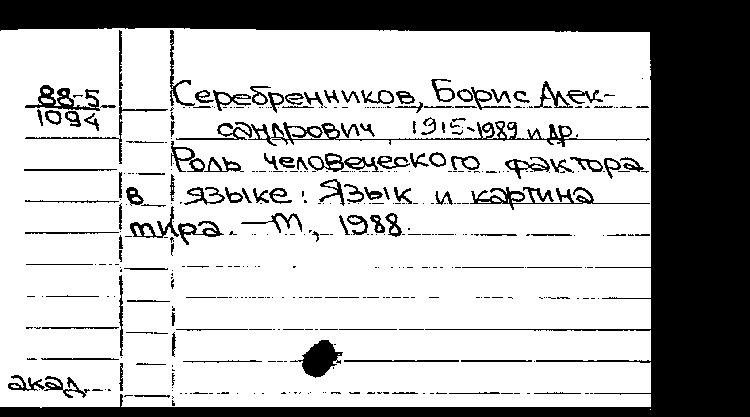 88-5
1094
Серебренников, Борис Алек-
сандрович, 1915-1989 и др.
Роль человеческого фактора
в языке: Язык и картина
мира. — М., 1988.
акад.